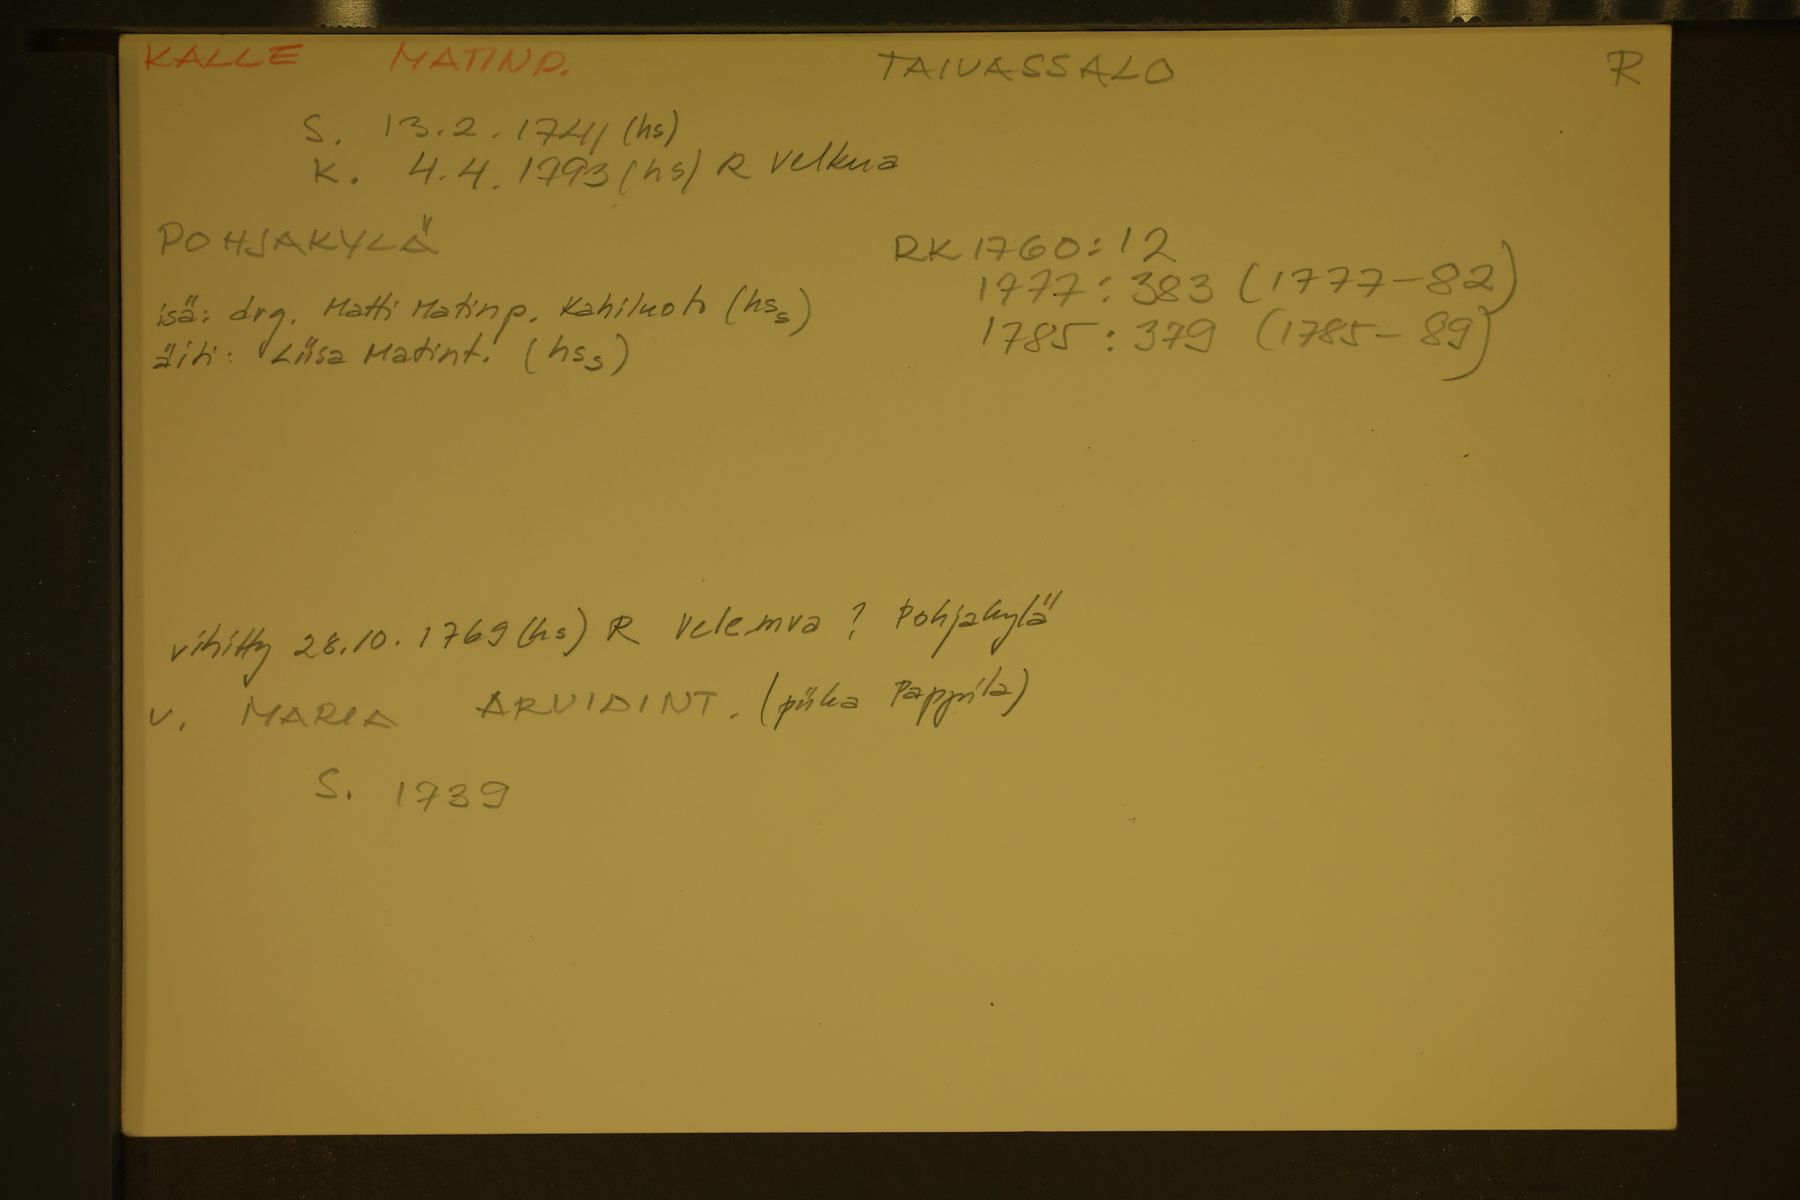 KALLE MATINP. TAIVASSALO R
S. 13.2.1741 (hs)
K. 4.4.1793 (hs) R Velkua
POHJAKYLÄ RK 1760:12
1777:383 (1777-82)
isä: drg. Matti Matinp. Kahiluoto (hss)
1785:379 (1785-89)
äiti: Liisa Matint. (hss)
vihitty 28.10.1769 (hs) R Velemva? Pohjakylä
v. MARIA ARVIDINT. (piika Pappila)
S. 1739